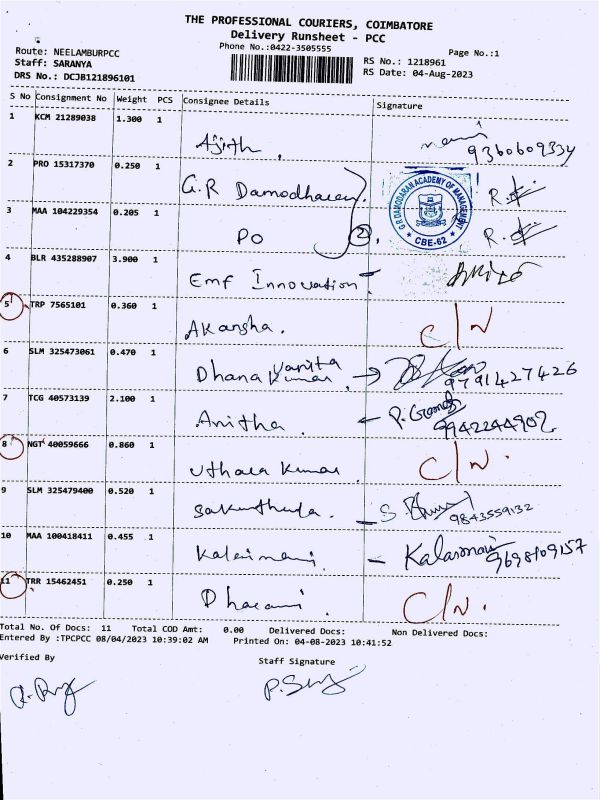 THE PROFESSIONAL COURIERS, COIMBATORE
Delivery Runsheet - PCC
Phone No.:0422-3505555
Page No.:1
Route: NEELAMBURPCC
Staff: SARANYA
DRS No.: DCJB121896101
RS No.: 1218961
RS Date: 04-Aug-2023
S No Consignment No Weight PCS Consignee Details Signature
1 KCM 21289038 1.300 1 Ajith. 9360609334
2 PRO 15317370 0.250 1 G.R Damodharan.
G.R DAMODARAN ACADEMY OF MANAGEMENT
CBE-62
3 MAA 104229354 0.205 1 PO 2.
4 BLR 435288907 3.900 1 Emf Innovation.
5 TRP 7565101 0.360 1 Akansha. C/N
6 SLM 325473061 0.470 1 Dhana Kumar Vanitha. → 9791427426
7 TCG 40573139 2.100 1 Anitha. ← 9942244902
8 NGT 40059666 0.860 1 Uthara Kumar. C/N.
9 SLM 325479400 0.520 1 Sakunthula. — 9843559132
10 MAA 100418411 0.455 1 Kalaimani. — Kalaimani 9698109157
11 TRR 15462451 0.250 1 Dharani. C/N.
Total No. Of Docs: 11 Total COD Amt: 0.00 Delivered Docs: Non Delivered Docs:
Entered By :TPCPCC 08/04/2023 10:39:02 AM Printed On: 04-08-2023 10:41:52
Verified By
Staff Signature